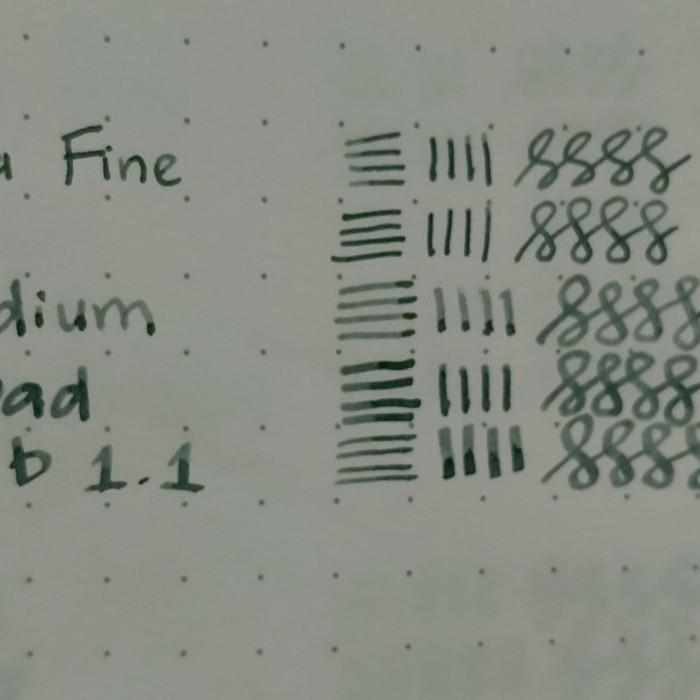 a Fine
dium
ad
b 1.1